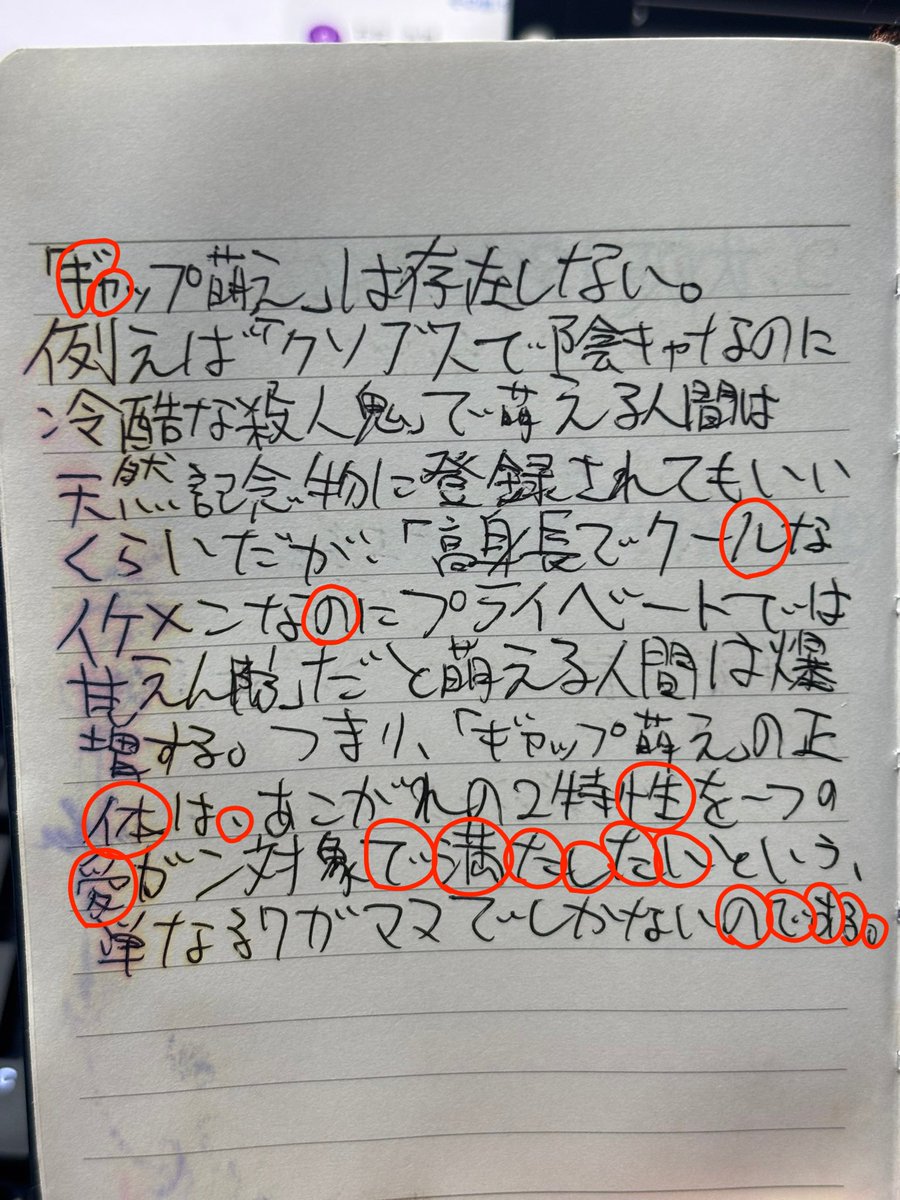 「ギャップ萌え」は存在しない。
例えば「クソブスで陰キャなのに
冷酷な殺人鬼」で萌える人間は
天然記念物に登録されてもいい
くらいだが、「高身長でクールな
イケメンなのにプライベートでは
甘えん坊」だと萌える人間は爆
増する。つまり、「ギャップ萌え」の正
体は、あこがれの2特性を一つの
愛ガン対象で満たしたいという、
単なるワガママでしかないのである。